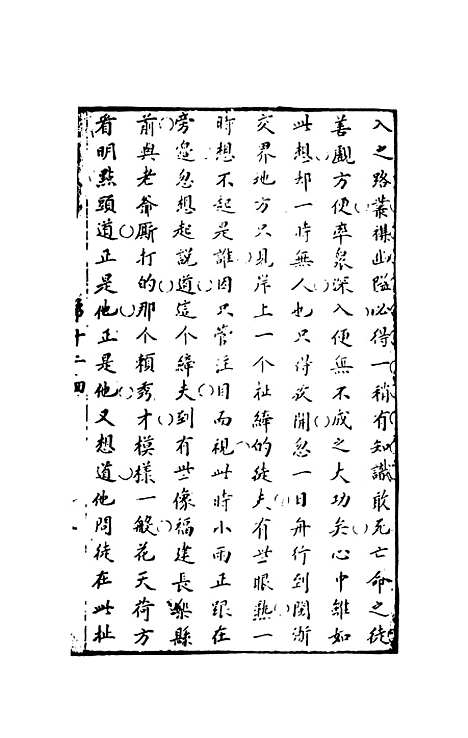 入之路叢樸幽隘必得一稍有知識敢死亡命之徒
善覷方便率衆深入便無不成之大功矣心中雖如
此想却一時無人也只得放開忽一日舟行到閩浙
交界地方只見岸上一个扯縴的徒夫有些眼熟一
時想不起是誰因只管注目而視此時小雨正跟在
旁邉忽想起説道這个縴夫到有些像福建長樂縣
前與老爺厮打的那个賴秀才模樣一般花天荷方
看明㸃頭道正是他正是他又想道他問徒在此扯
第十二回